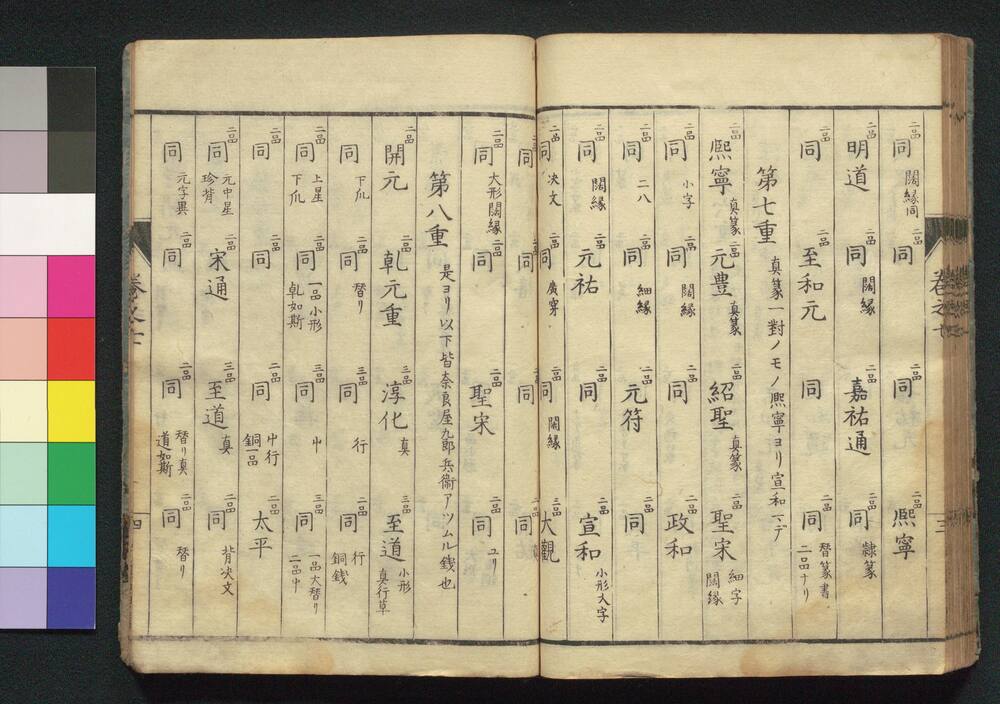 二品同 濶縁同 二品同 二品同 二品熈寧
二品明道 二品同 濶縁 二品嘉祐通 二品同 隸篆
二品同 二品至和元 同 二品同 替篆書 二品ナリ
第七重 真篆一對ノモノ熈寧ヨリ宣和マデ
二品熈寧 真篆 二品元豊 真篆 二品紹聖 真篆 二品聖宋 細字 闊縁
二品同 小字 二品同 闊縁 二品同 二品政和
二品同 二八 二品同 細縁 二品元符 二品同
二品同 闊縁 二品元祐 二品同 二品宣和 小形大字
二品同 决文 二品同 廣穿 二品同 闊縁 二品大觀
二品同 二品同 二品同 二品同
二品同 大形闊縁 二品同 二品聖宋 二品同 ユリ
第八重 是ヨリ以下皆奈良屋九郎兵衞アツムル銭也
二品開元 二品乹元重 三品淳化 真 三品至道 小形 真行草
同 下爪 二品同 替リ 三品同 行 二品同 行 銅銭
二品同 上星 下爪 二品同 一品小形 乹如斯 三品同 中 三品同 一品大替リ 二品中
二品同 二品同 二品同 中行 銅一品 二品太平
二品同 元中星 珍背 二品宋通 三品至道 真 二品同 背决文
二品同 元字異 二品同 二品同 替リ真 道如斯 二品同 替リ
卷之七
三
卷之七
四